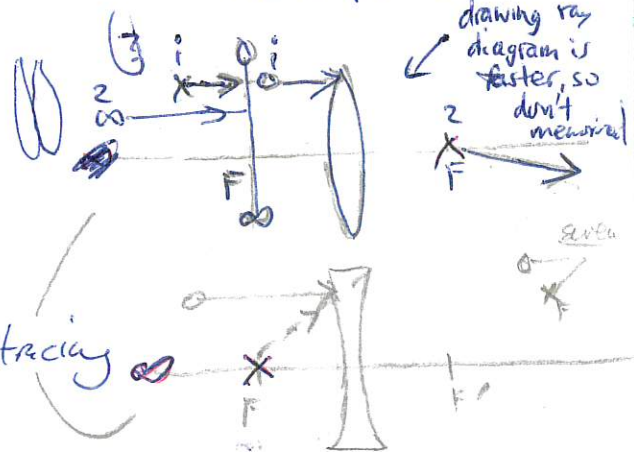 drawing ray
diagram is
faster, so
don't
memorized
i
i
2
2
F
F
tracing
F
F